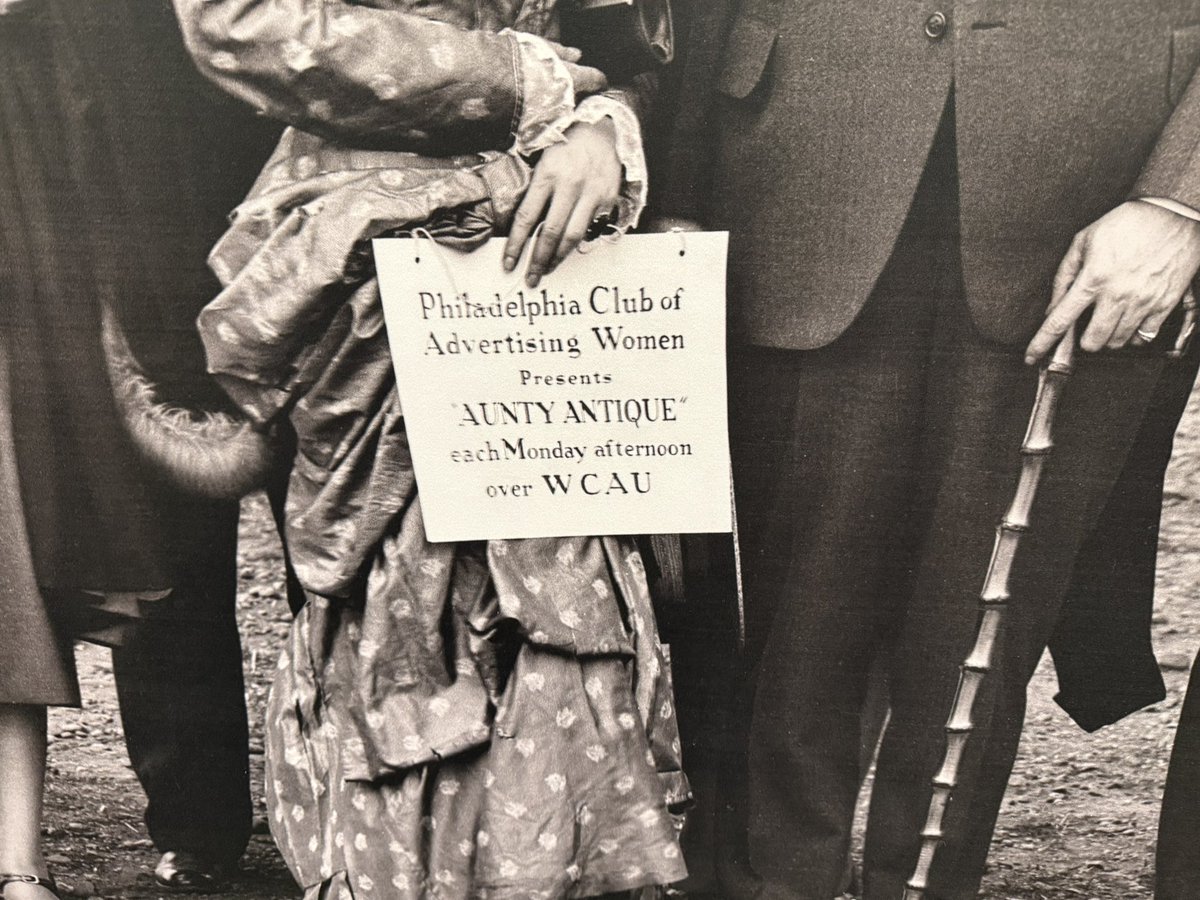 Philadelphia Club of
Advertising Women
Presents
"AUNTY ANTIQUE"
each Monday afternoon
over WCAU